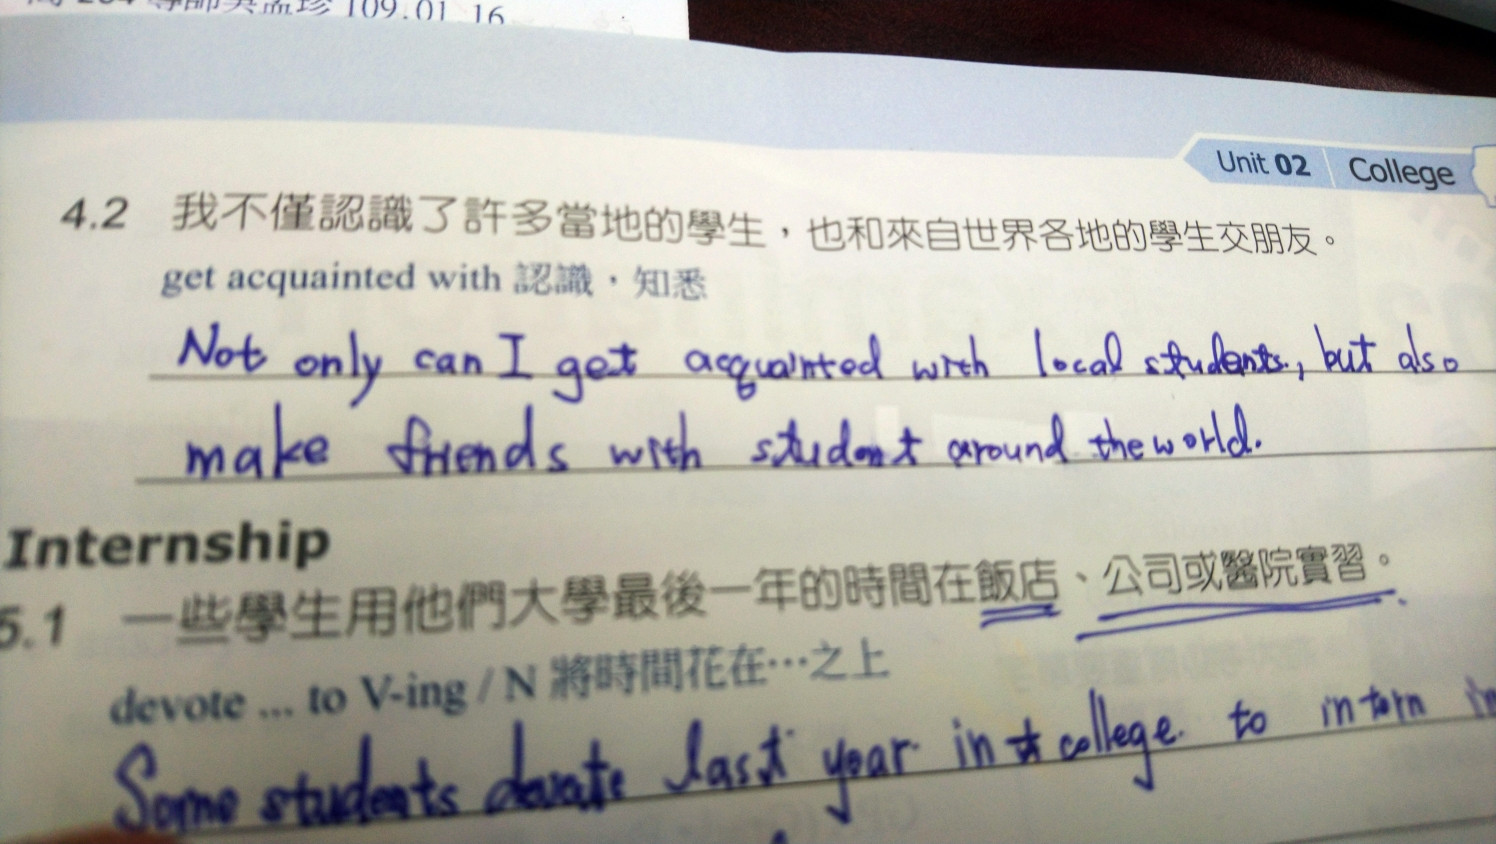 109.01.16
Unit 02 College
4.2 我不僅認識了許多當地的學生，也和來自世界各地的學生交朋友。
get acquainted with 認識，知悉
Not only can I get acquainted with local students, but also
make friends with student around the world.
Internship
5.1 一些學生用他們大學最後一年的時間在飯店、公司或醫院實習。
devote ... to V-ing / N 將時間花在…之上
Some students devote last year in college to intern in